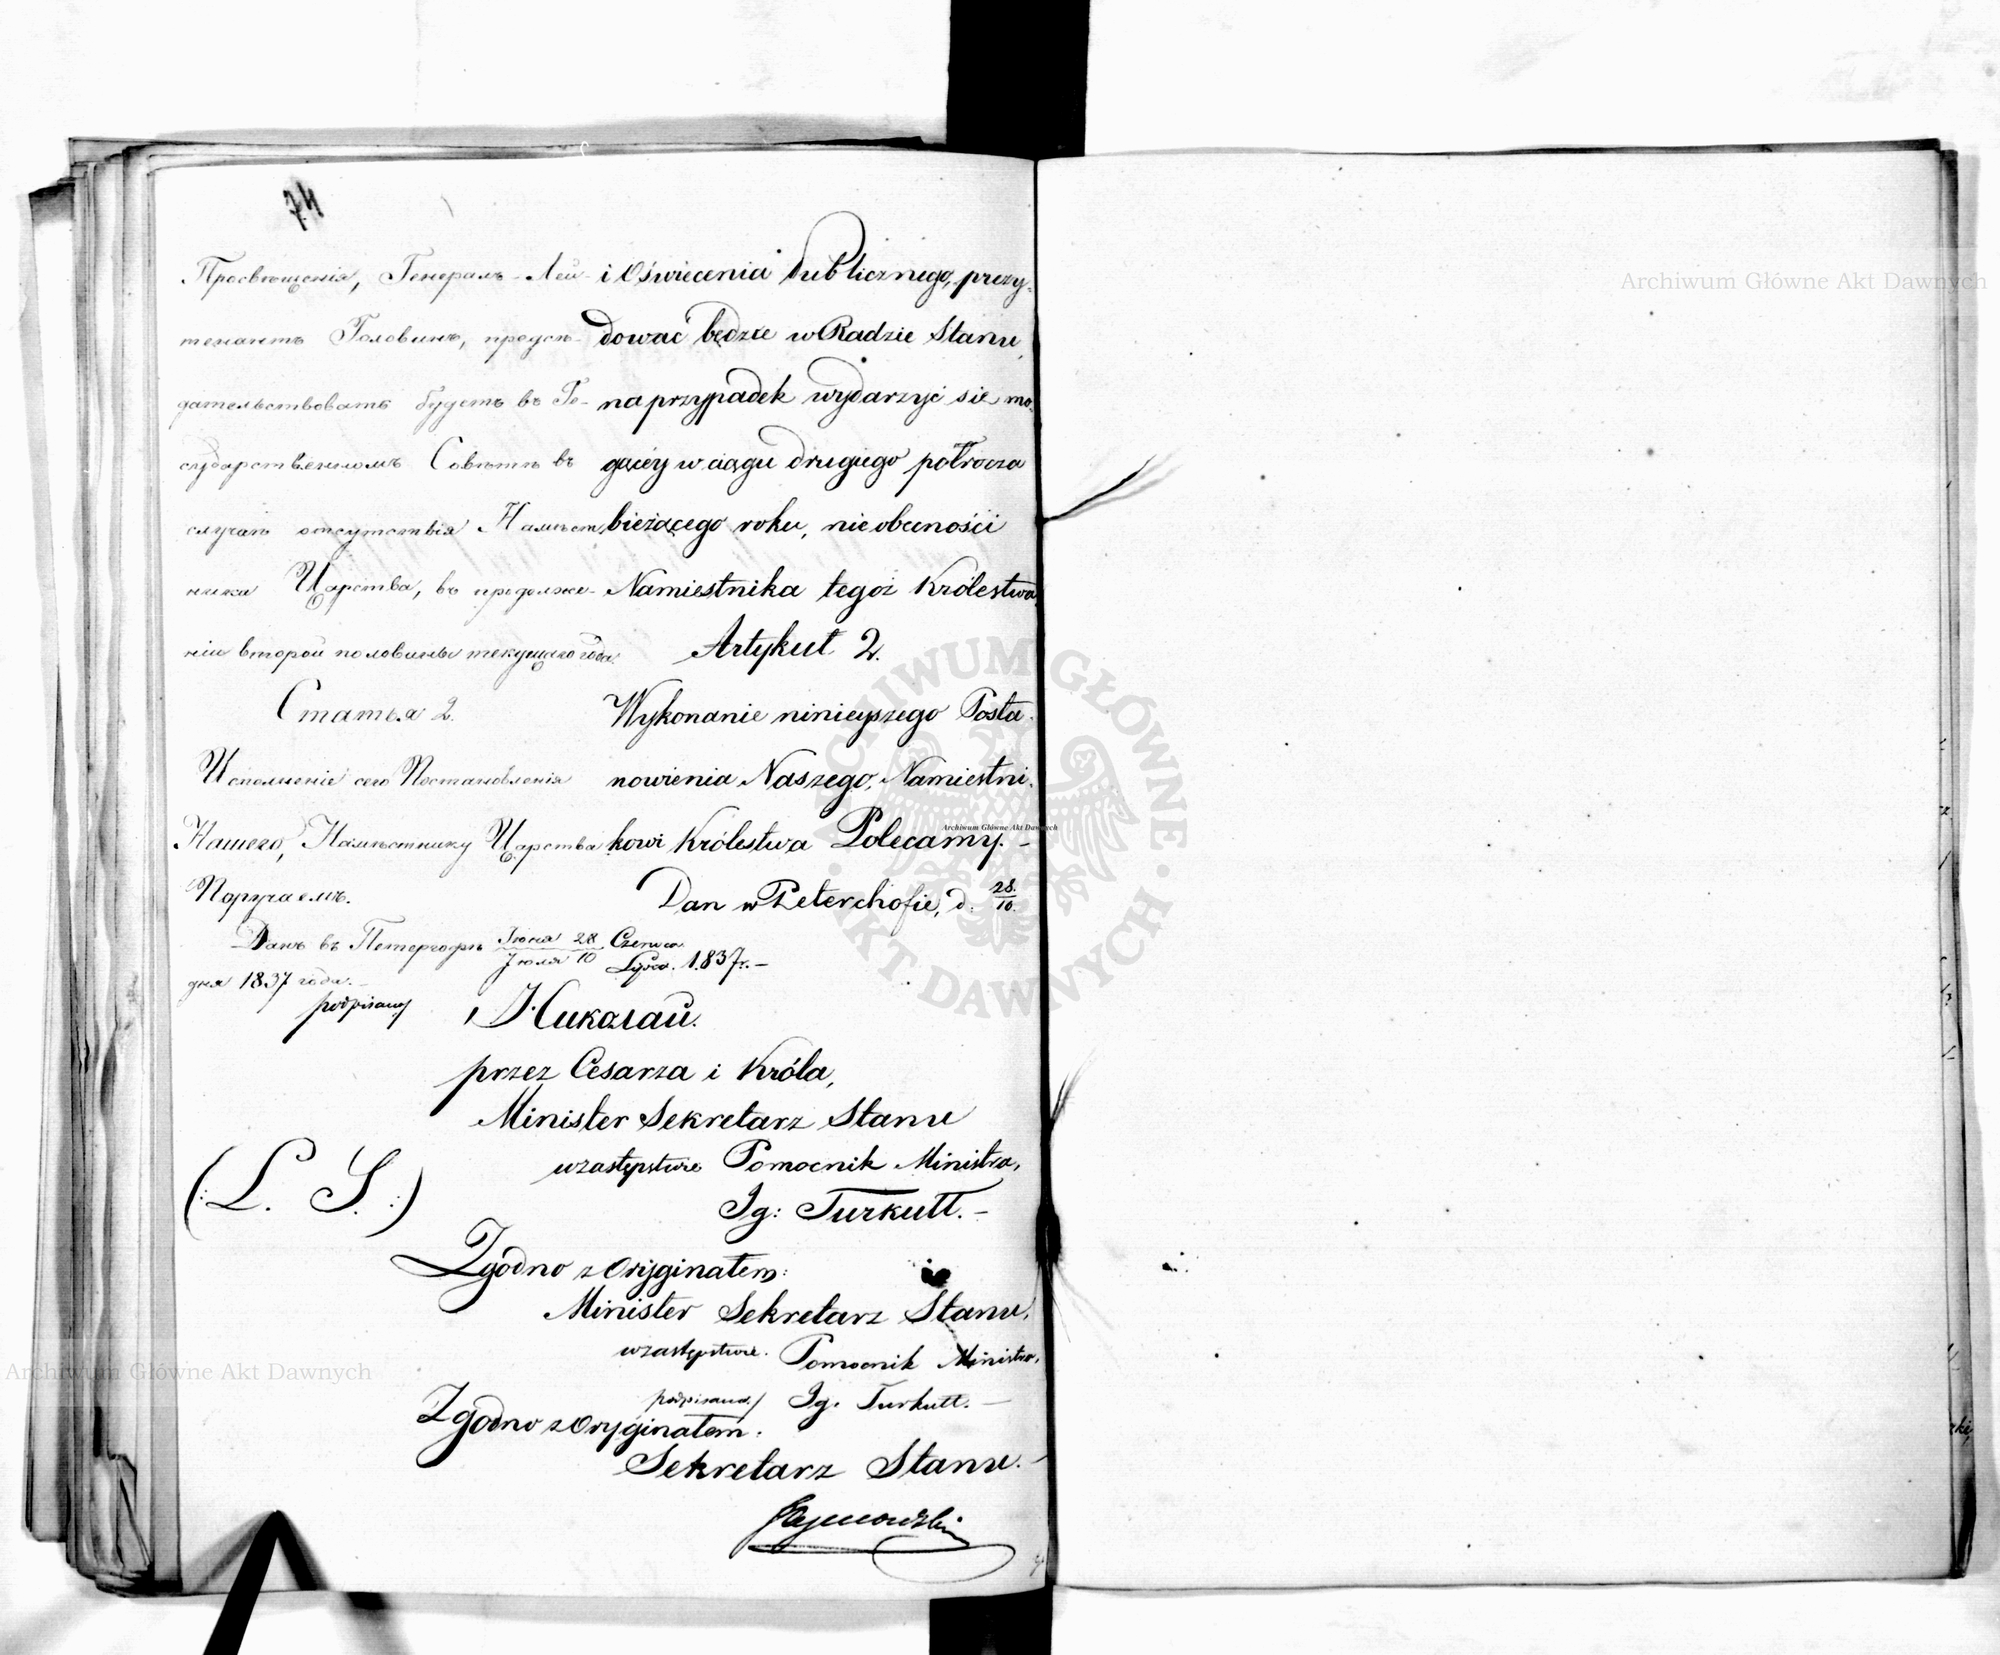 74
Просвѣщенія, Генералъ-Лей-
тенантъ Головинъ, предсѣ-
дательствовать будетъ въ Го-
сударственномъ Совѣтѣ въ
случаѣ отсутствія Намѣст
ника Царства, въ продолже-
ніи второй половины текущаго года.
Статья 2.
Исполненіе сего Постановленія
Нашего, Намѣстнику Царства
Поручаемъ.
Данъ въ Петергофѣ Іюня 28 / Іюля 10
дня 1837 года.-
i Oświecenia Publicznego, prezy-
dować będzie w Radzie Stanu,
na przypadek wydarzyć się mo-
gącéy w ciągu drugiego półrocza
bieżącego roku, nieobecności
Namiestnika tegoż Królestwa.
Artykuł 2.
Wykonanie ninieyszego Posta-
nowienia Naszego, Namiestni-
kowi Królestwa Polecamy.-
Dan w Peterchofie, d. 28./10.
Czerwca / Lipca. 1837r.-
podpisany
Николай.
przez Cesarza i Króla,
Minister Sekretarz Stanu
w zastępstwie Pomocnik Ministra,
(:L. S.:)
Ig: Turkułł.-
Zgodno z Oryginałem:
Minister Sekretarz Stanu,
w zastępstwie. Pomocnik Ministra,
podpisano/ Ig. Turkułł.-
Zgodno z Oryginałem:
Sekretarz Stanu.-
Archiwum Główne Akt Dawnych
Archiwum Główne Akt Dawnych
Archiwum Główne Akt Dawnych
ARCHIWUM GŁÓWNE AKT DAWNYCH